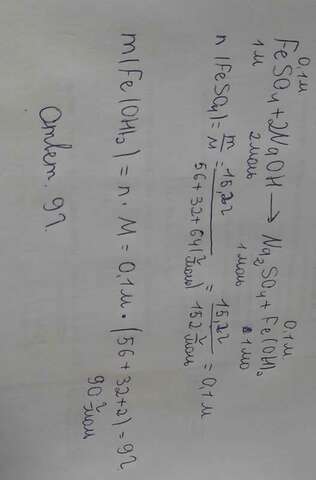 0,1м 0,1м
FeSO4 + 2NaOH → Na2SO4 + Fe(OH)2
1м 2моль 1моль 1мо
n(FeSO4) = m/M = 15,2г / 56+32+64(г/моль) = 15,2г / 152 г/моль = 0,1м
m(Fe(OH)2) = n · M = 0,1м · (56+32+2) = 9г
90 г/мол
Ответ. 9г